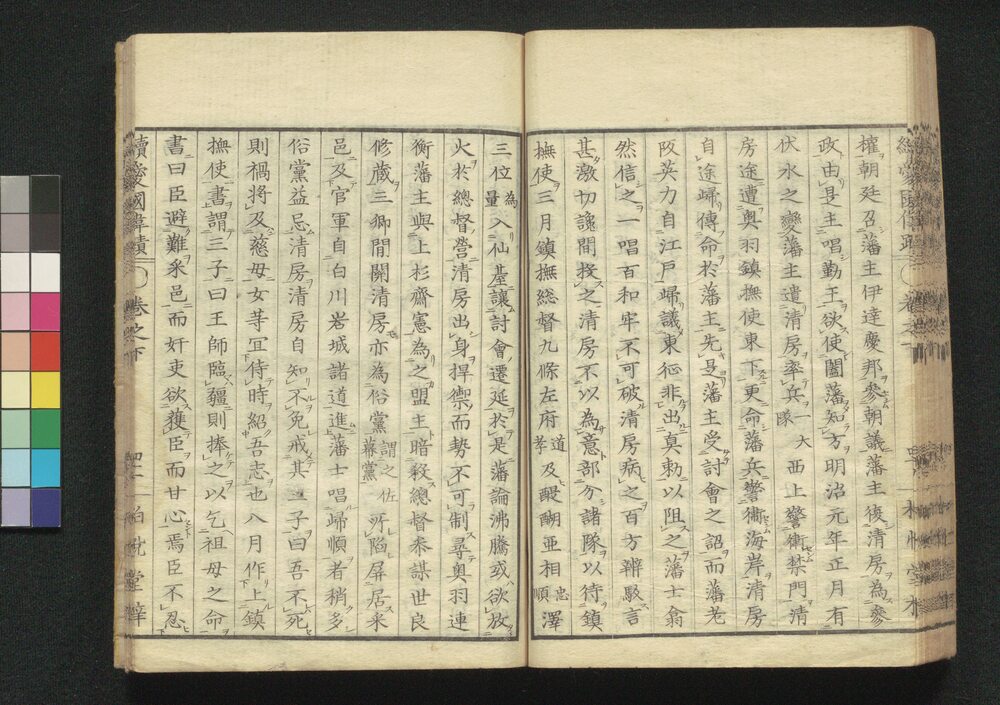 權朝廷召藩主伊達慶邦參朝議藩主復清房為參
政由是主唱勤王欲使闔藩知方明治元年正月有
伏水之變藩主遣清房率兵一大隊西上警衛禁門清
房途遭奧羽鎮撫使東下更命藩兵警衛海岸清房
自途歸傳命於藩主先是藩主受討會之詔而藩老
阪英力自江戶歸議東征非出真勅以阻之藩士翕
然信之一唱百和牢不可破清房病之百方辨駁言
甚激切讒間投之清房不以為意部分諸隊以待鎮
撫使三月鎮撫総督九條左府道孝及醍醐亜相忠順澤
三位為量入仙基讓討會遷延於是藩論沸騰或欲放
火於總督營清房出身捍禦而勢不可制尋奧羽連
衡藩主與上杉齋憲為之盟主暗殺總督恭謀世良
修蔵三卿間關清房亦為俗黨謂之佐幕黨所陷屏居釆
邑及官軍自白川岩城諸道進藩士唱歸順者稍多
俗黨益忌清房清房自知不免戒其二子曰吾不死
則禍將及慈母女等宜侍時紹吾志也八月作上鎮
撫使書謂三子曰王師臨疆則捧之以乞祖母之命
書曰臣避難釆邑而奸吏欲獲臣而甘心焉臣不忍
續愛國偉績 卷之下 四十一 柏悅堂梓